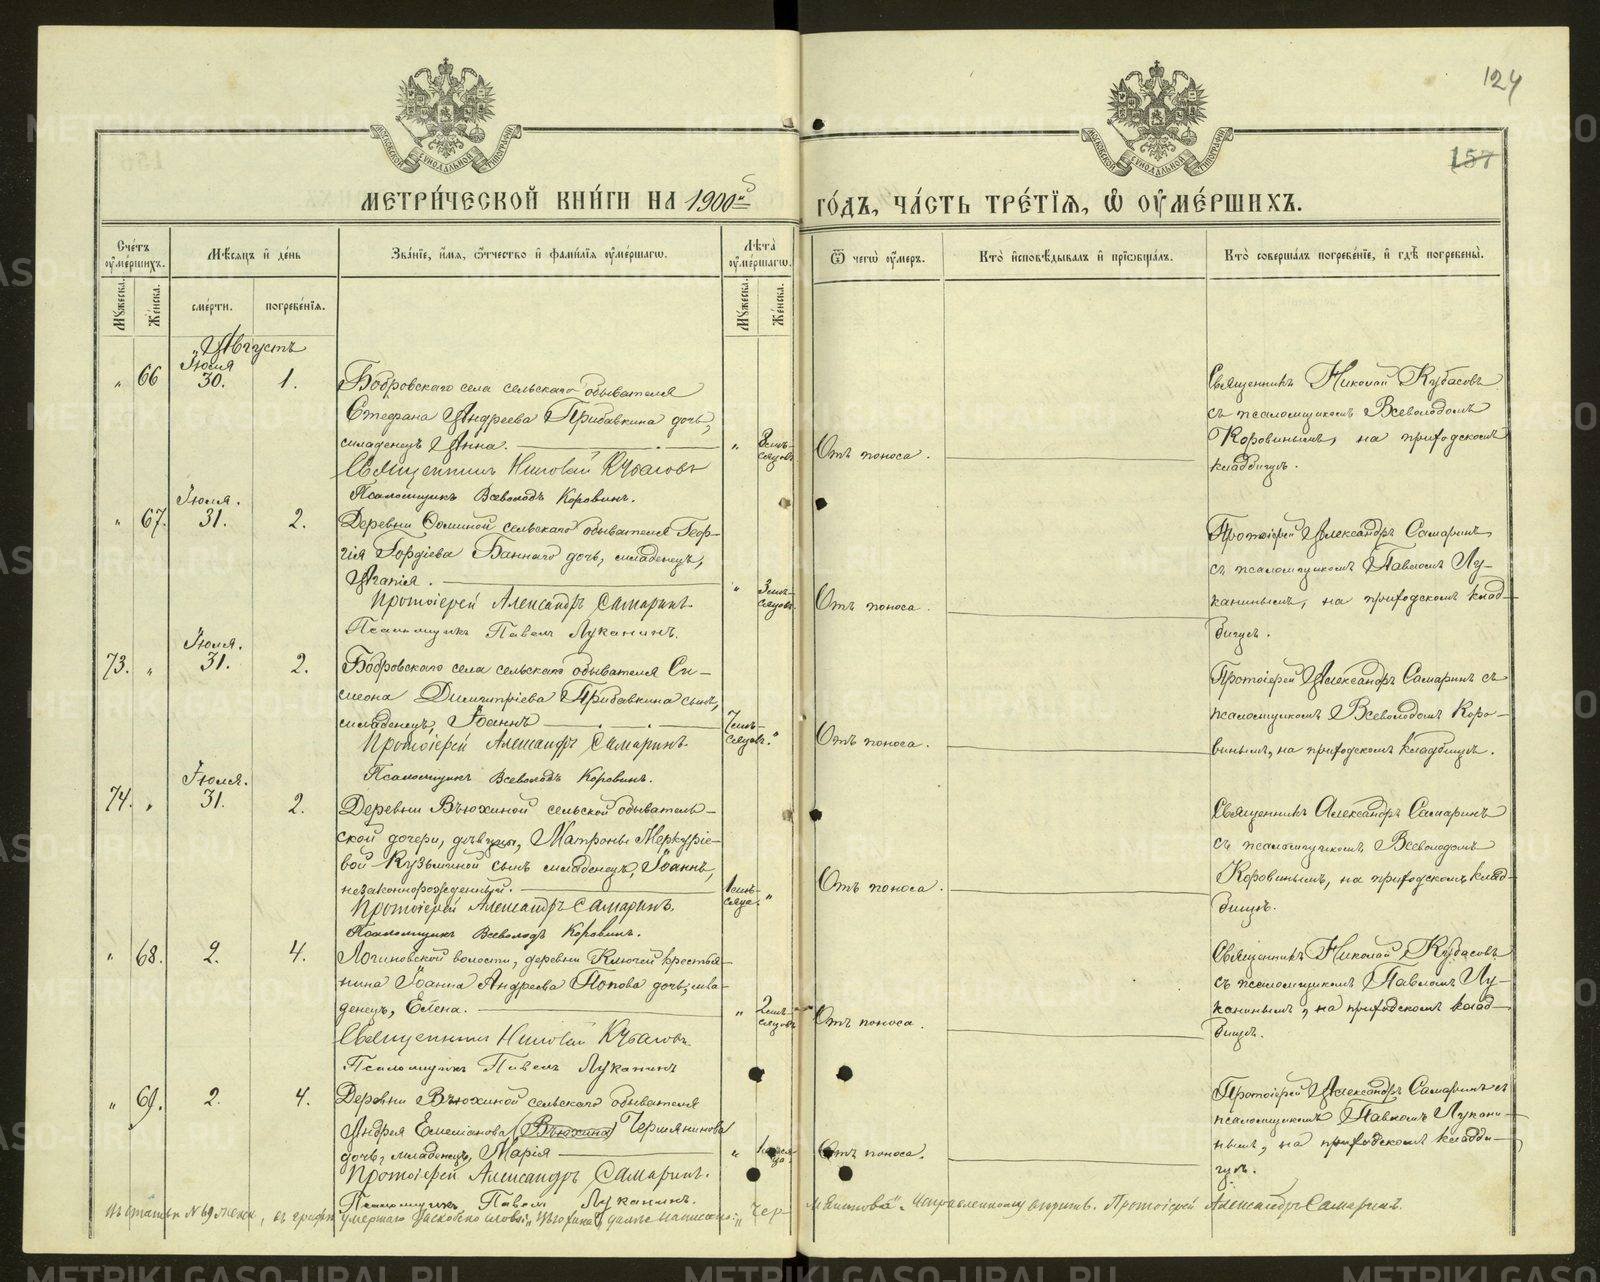 124
157
МЕТРИ́ЧЕСКОЙ КНИ́ГИ НА 1900й
ГО́ДЪ, ЧА́СТЬ ТРЕ́ТІЯ, Ѡ ОУМЕ́РШИХЪ.
Счетъ оумершихъ.
Мѣсяцъ и день
Званіе, имя, отчество и фамилія оумершагѡ.
Лѣта оумершагѡ.
Ѿ чегѡ оумеръ.
Кто исповѣдывалъ и пріобщалъ.
Кто совершалъ погребеніе, и гдѣ погребены.
Мужеска.
Женска.
смерти.
погребенія.
Мужеска.
Женска.
Августъ
" 66
Іюля
30.
1.
Бобровскаго села сельскаго обывателя
Стефана Андреева Прибавкина дочь,
младенецъ Анна.
Священникъ Николай Кубасовъ
Псаломщикъ Всеволодъ Коровинъ.
Отъ поноса.
Священникъ Николай Кубасовъ
съ псаломщикомъ Всеволодомъ
Коровинымъ, на приходскомъ
кладбищѣ.
" 67.
Іюля.
31.
2.
Деревни сельскаго обывателя Геор-
гія Гордіева Баннаго дочь, младенецъ,
Агапія.
Протоіерей Александръ Самаринъ.
Псаломщикъ Павелъ Луканинъ.
" 3 мѣ-
сяцовъ.
Отъ поноса.
Протоіерей Александръ Самаринъ
съ псаломщикомъ Павломъ Лу-
канинымъ, на приходскомъ клад-
бищѣ.
73. "
Іюля.
31.
2.
Бобровскаго села сельскаго обывателя Си-
меона Димитріева Прибавкина сынъ,
младенецъ, Іоаннъ
Протоіерей Александръ Самаринъ.
Псаломщикъ Всеволодъ Коровинъ.
7 мѣ-
сяцовъ. "
Отъ поноса.
Протоіерей Александръ Самаринъ съ
псаломщикомъ Всеволодомъ Коро-
винымъ, на приходскомъ кладбищѣ.
74. "
Іюля.
31.
2.
Деревни Вьюхиной сельской обыватель-
ской дочери, дѣвицы, Матроны Меркуріе-
вой Кузьминой сынъ младенецъ, Іоаннъ,
незаконнорожденный.
Протоіерей Александръ Самаринъ.
Псаломщикъ Всеволодъ Коровинъ.
1 мѣ-
сяца. "
Отъ поноса.
Священникъ Александръ Самаринъ
съ псаломщикомъ Всеволодомъ
Коровинымъ, на приходскомъ клад-
бищѣ.
" 68.
2.
4.
Логиновской волости, деревни Ключей крестья-
нина Іоанна Андреева Попова дочь, мла-
денецъ, Елена.
Священникъ Николай Кубасовъ.
Псаломщикъ Павелъ Луканинъ
" 2 мѣ-
сяцовъ
Отъ поноса.
Священникъ Николай Кубасовъ
съ псаломщикомъ Павломъ Лу-
канинымъ, на приходскомъ клад-
бищѣ.
" 69.
2.
4.
Деревни Вьюхиной сельскаго обывателя
Андрея Емеліанова (Вьюхина) Чермянинова
дочь, младенецъ, Марія
Протоіерей Александръ Самаринъ.
Псаломщикъ Павелъ Луканинъ.
Отъ поноса.
Протоіерей Александръ Самаринъ съ
псаломщикомъ Павломъ Лукани-
нымъ, на приходскомъ кладби-
щѣ.
Въ статьѣ № 69 женск., въ графѣ умершаго слова: "Вьюхина", далѣе написано: "Чер
мянинова". Исправленному вѣрить. Протоіерей Александръ Самаринъ.